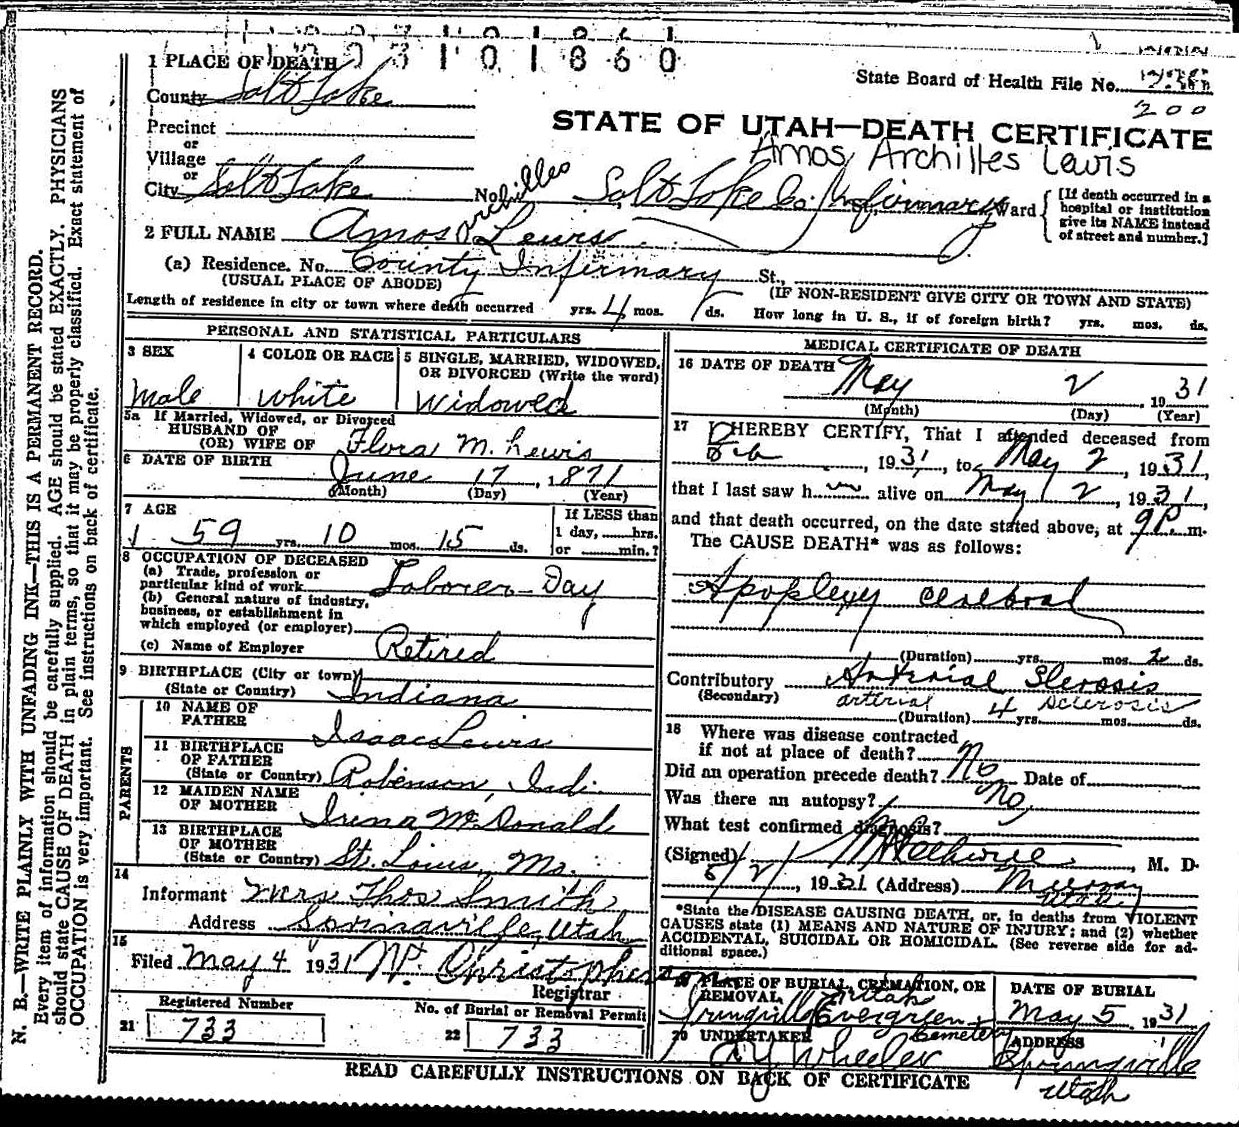 1 0 0 3 1 0 1 8 6 0
1 PLACE OF DEATH
State Board of Health File No.
County Salt Lake
200
STATE OF UTAH—DEATH CERTIFICATE
Precinct
or
Village
Amos Archilles Lewis
or
City Salt Lake No. Salt Lake Co. Infirmary Ward
[If death occurred in a hospital or institution give its NAME instead of street and number.]
Archilles
2 FULL NAME Amos Lewis
(a) Residence. No. County Infirmary St.,
(USUAL PLACE OF ABODE) (IF NON-RESIDENT GIVE CITY OR TOWN AND STATE)
Length of residence in city or town where death occurred yrs. 4 mos. ds. How long in U. S., if of foreign birth? yrs. mos. ds.
PERSONAL AND STATISTICAL PARTICULARS
3 SEX 4 COLOR OR RACE 5 SINGLE, MARRIED, WIDOWED,
OR DIVORCED (Write the word)
Male White Widowed
5a If Married, Widowed, or Divorced
HUSBAND OF
(OR) WIFE OF Flora M. Lewis
6 DATE OF BIRTH June 17, 1871
(Month) (Day) (Year)
7 AGE If LESS than
59 yrs. 10 mos. 15 ds. 1 day, hrs.
or min.?
8 OCCUPATION OF DECEASED
(a) Trade, profession or
particular kind of work Laborer-Day
(b) General nature of industry,
business, or establishment in
which employed (or employer)
(c) Name of Employer Retired
9 BIRTHPLACE (City or town)
(State or Country) Indiana
PARENTS
10 NAME OF
FATHER Isaac Lewis
11 BIRTHPLACE
OF FATHER
(State or Country) Robinson, Indi.
12 MAIDEN NAME
OF MOTHER Irena McDonald
13 BIRTHPLACE
OF MOTHER
(State or Country) St. Louis, Mo.
14
Informant Mrs Thos Smith
Address Springville, Utah
15
Filed May 4 1931 W. Christophenson
Registrar
Registered Number No. of Burial or Removal Permit
21 733 22 733
MEDICAL CERTIFICATE OF DEATH
16 DATE OF DEATH May 2, 1931
(Month) (Day) (Year)
17 I HEREBY CERTIFY, That I attended deceased from
Feb, 1931, to May 2, 1931,
that I last saw h alive on May 2, 1931,
and that death occurred, on the date stated above, at 9P m.
The CAUSE DEATH* was as follows:
Apoplexy Cerebral
(Duration) yrs. mos. 2 ds.
Contributory Arterial Slerosis
(Secondary) arterial sclerosis
(Duration) 4 yrs. mos. ds.
18 Where was disease contracted
if not at place of death? No
Did an operation precede death? No Date of
Was there an autopsy? No
What test confirmed diagnosis?
(Signed) M. D.
5/2/, 1931 (Address) Murray
Utah
*State the DISEASE CAUSING DEATH, or, in deaths from VIOLENT
CAUSES state (1) MEANS AND NATURE OF INJURY; and (2) whether
ACCIDENTAL, SUICIDAL OR HOMICIDAL. (See reverse side for ad-
ditional space.)
19 PLACE OF BURIAL, CREMATION, OR
REMOVAL, Utah
Springville Evergreen Cemetery
DATE OF BURIAL
May 5, 1931
20 UNDERTAKER
A Y Wheeler
ADDRESS
Springville
Utah
READ CAREFULLY INSTRUCTIONS ON BACK OF CERTIFICATE
N. B.—WRITE PLAINLY WITH UNFADING INK—THIS IS A PERMANENT RECORD.
Every item of information should be carefully supplied. AGE should be stated EXACTLY. PHYSICIANS
should state CAUSE OF DEATH in plain terms, so that it may be properly classified. Exact statement of
OCCUPATION is very important. See instructions on back of certificate.